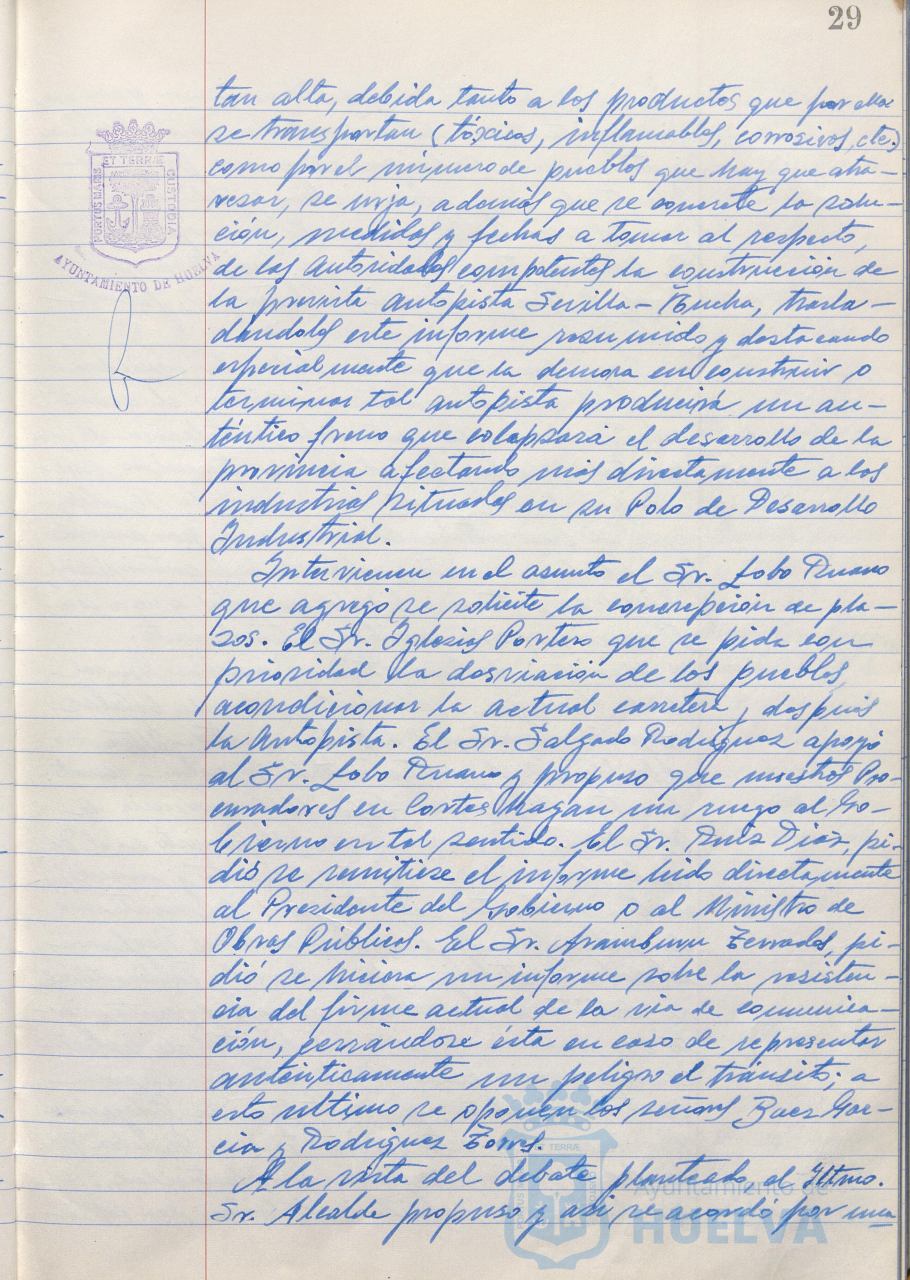 29
tan alta, debida tanto a los productos que por ella
se transportan (tóxicos, inflamables, corrosivos, etc.)
como por el número de pueblos que hay que atra-
vesar, se urja, además que se concrete la solu-
ción, medidas y fechas a tomar al respecto,
de las Autoridades competentes, la construcción de
la prevista autopista Sevilla-Huelva, trasla-
dandoles este informe resumido y destacando
especialmente que la demora en construir o
terminar tal autopista producirá un au-
téntico freno que colapsará el desarrollo de la
provincia afectando más directamente a las
industrias situadas en su Polo de Desarrollo
Industrial.
Intervienen en el asunto el Sr. Lobo Ruano
que agregó se solicite la concrepción de pla-
zos. El Sr. Iglesias Portero que se pida con
prioridad la desviación de los pueblos,
acondicionar la actual carretera y después
la Autopista. El Sr. Salgado Rodríguez apoyó
al Sr. Lobo Ruano y propuso que nuestros Pro-
curadores en Cortes hagan un ruego al Go-
bierno en tal sentido. El Sr. Ruiz Diaz, pi-
dió se remitiese el informe leido directamente
al Presidente del Gobierno o al Ministro de
Obras Públicas. El Sr. Aramburu Terrades, pi-
dió se hiciera un informe sobre la resisten-
cia del firme actual de la via de comunica-
ción, cerrándose ésta en caso de representar
auténticamente un peligro el tránsito; a
esto ultimo se oponen los señores Baez Gar-
cia y Rodriguez Torres.
A la vista del debate planteado, el Iltmo.
Sr. Alcalde propuso y así se acordó por una
PORTUS MARIS ET TERRÆ CUSTODIA
AYUNTAMIENTO DE HUELVA
Ayuntamiento de
HUELVA